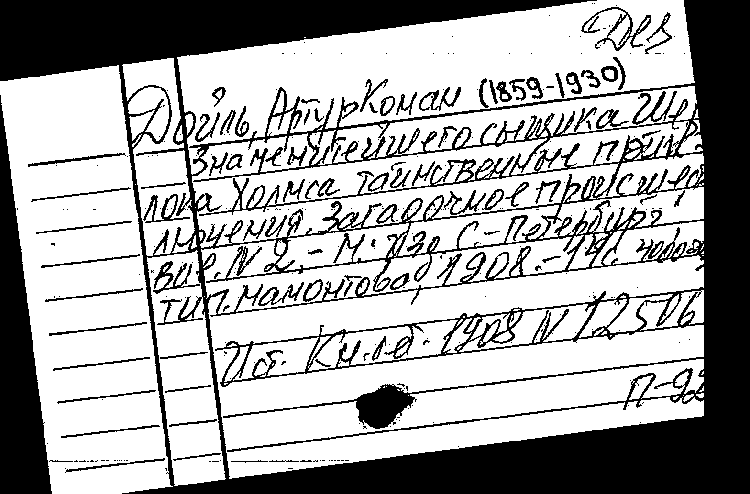 Дез
Дойль, Артур Конан (1859-1930)
Знаменитейшего сыщика Шер
лока Холмса таинственные прик
лючения. Загадочное происшест
вие. N 2. - М.: изд. С.-Петербург
тип. Мамонтова, 1908. - 14 с.
Ист. Кн. лет. 1908 N 12506
П-92